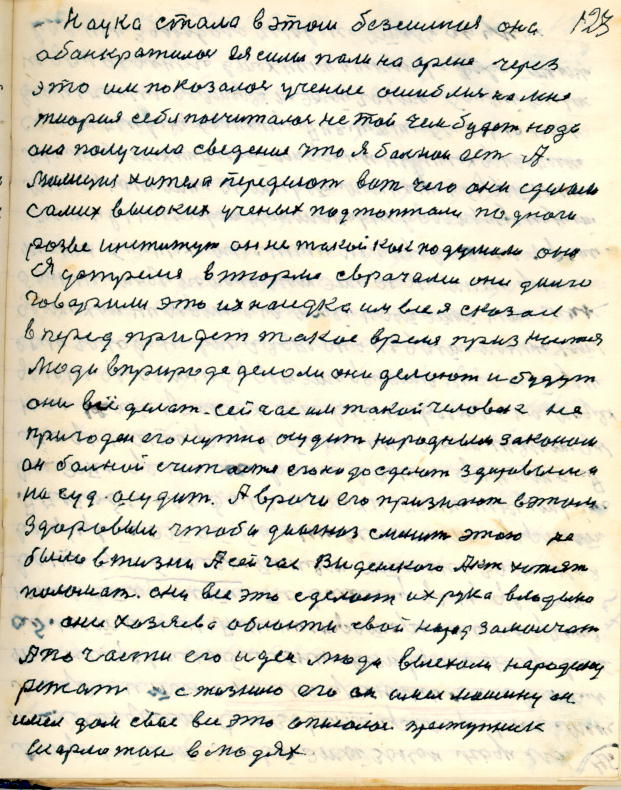 Наука стала в этом безсилия она 123
абанкратилас ея силы пали на арене через
это им показалос ученые ошиблис на мне
тиория себя посчиталас не той чем будет надо
она получила сведение что я балной ест А
милиция хотела переделат вот чего они сделали
самих высоких ученых подтоптали под ноги
розве институт он не такой как подумали они
Я дотремя вторил с врачами они долго
говорили это их находка им все я сказал
вперед придет такое время признается
Люди в природе делали они делают и будут
они всё делат. сейчас им такой человек не
пригоден его нужно судит народным законом
он балной считается его надо сделат здоровым и
на суд. осудит. А врачи его признают в этом.
Здоровым чтобы диагноз сменит этого не
было в жизни А сейчас Виденского Акт хотят
поломат. они все это сделают их рука владыко
они хозяева области свой народ замолчат
А по части его идеи люди выехали на родину
режат с жизнию его он имел машину он
имел дом свое все это отнелос преступник
шарлотан в людях.